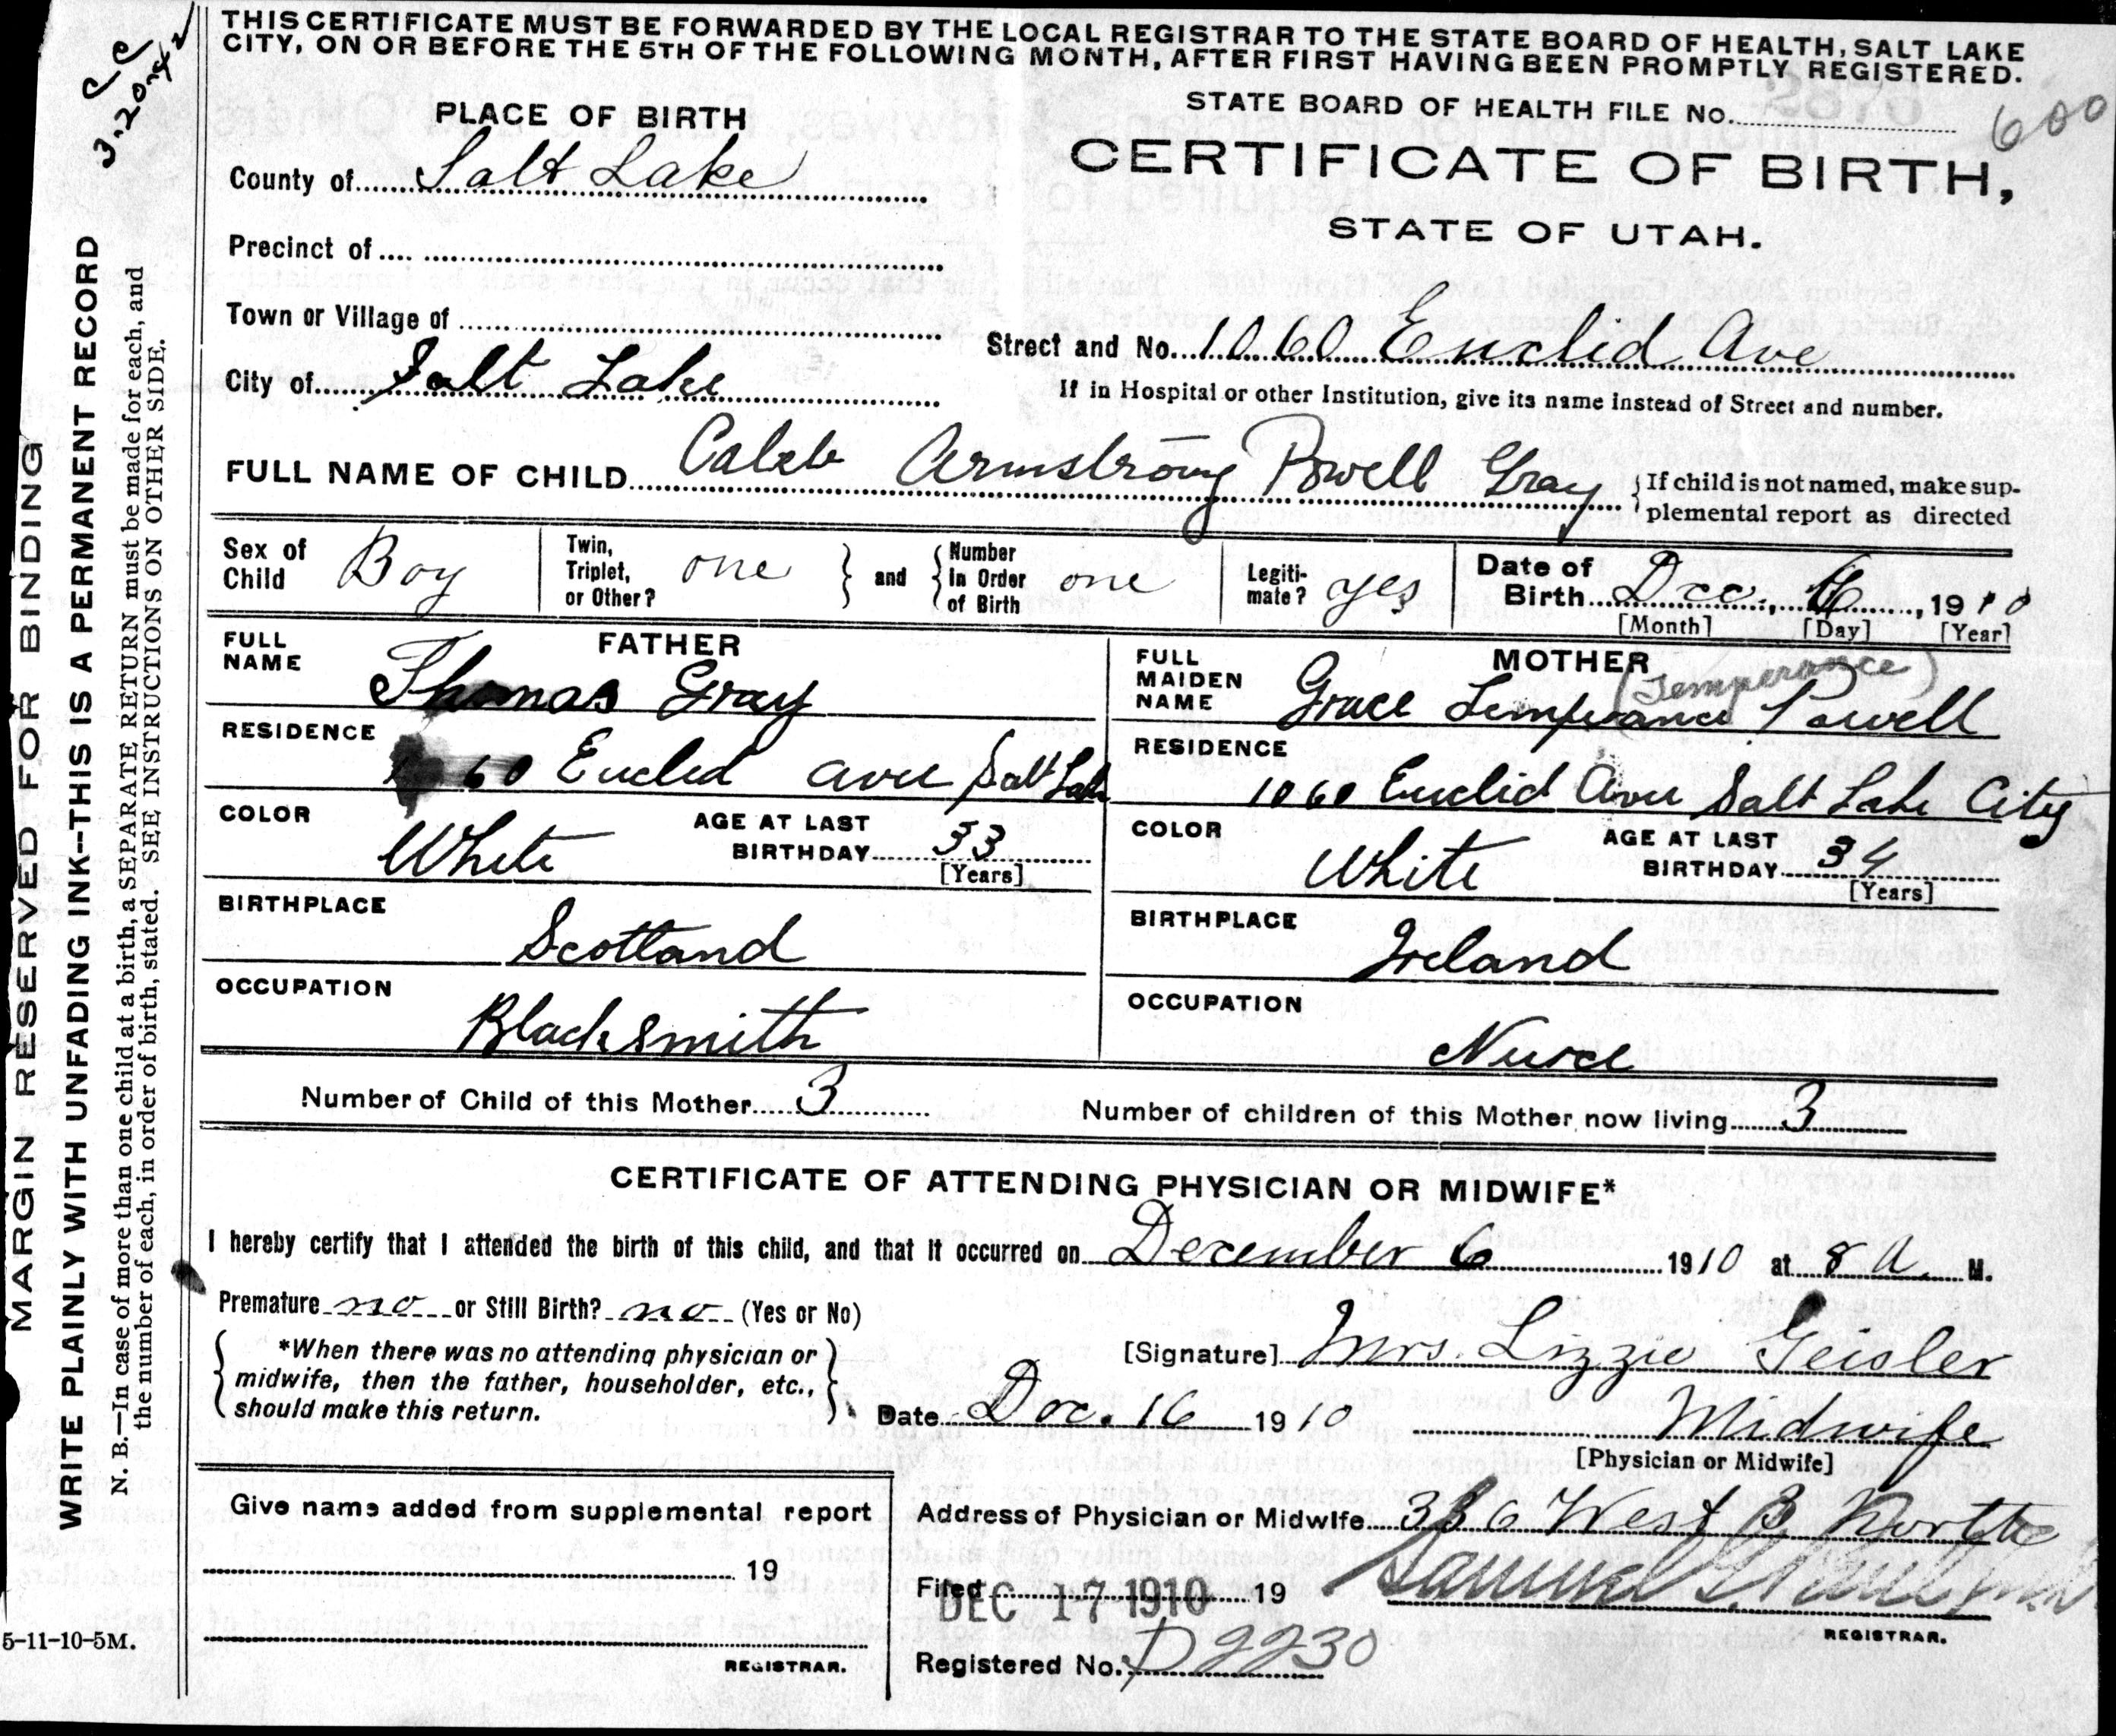 THIS CERTIFICATE MUST BE FORWARDED BY THE LOCAL REGISTRAR TO THE STATE BOARD OF HEALTH, SALT LAKE
CITY, ON OR BEFORE THE 5TH OF THE FOLLOWING MONTH, AFTER FIRST HAVING BEEN PROMPTLY REGISTERED.
PLACE OF BIRTH
STATE BOARD OF HEALTH FILE No. 600
CERTIFICATE OF BIRTH,
STATE OF UTAH.
County of Salt Lake
Precinct of
Town or Village of
Street and No. 1060 Euclid Ave
City of Salt Lake
If in Hospital or other Institution, give its name instead of Street and number.
FULL NAME OF CHILD Caleb Armstrong Powell Gray
If child is not named, make sup-
plemental report as directed
Sex of Child Boy
Twin, Triplet, or Other? one and Number in Order of Birth one
Legiti-mate? yes
Date of Birth Dec. 6, 1910
[Month] [Day] [Year]
FATHER
FULL NAME Thomas Gray
RESIDENCE 1060 Euclid avee Salt Lake
COLOR White AGE AT LAST BIRTHDAY 33
[Years]
BIRTHPLACE Scotland
OCCUPATION Blacksmith
MOTHER
(Temperance)
FULL MAIDEN NAME Grace Temprance Powell
RESIDENCE 1060 Euclid Avee Salt Lake City
COLOR White AGE AT LAST BIRTHDAY 34
[Years]
BIRTHPLACE Ireland
OCCUPATION Nurse
Number of Child of this Mother 3 Number of children of this Mother now living 3
CERTIFICATE OF ATTENDING PHYSICIAN OR MIDWIFE*
I hereby certify that I attended the birth of this child, and that it occurred on December 6 1910 at 8 A. M.
Premature no or Still Birth? no (Yes or No)
*When there was no attending physician or
midwife, then the father, householder, etc.,
should make this return.
[Signature] Mrs. Lizzie Geisler
Date Dec. 16 1910 Midwife
[Physician or Midwife]
Give name added from supplemental report
19
REGISTRAR.
Address of Physician or Midwife 336 West 3 North
Filed DEC 17 1910 19 Samuel G. Paul
REGISTRAR.
Registered No. D2230
5-11-10-5M.
MARGIN RESERVED FOR BINDING
WRITE PLAINLY WITH UNFADING INK--THIS IS A PERMANENT RECORD
N. B.—In case of more than one child at a birth, a SEPARATE RETURN must be made for each, and
the number of each, in order of birth, stated. SEE INSTRUCTIONS ON OTHER SIDE.